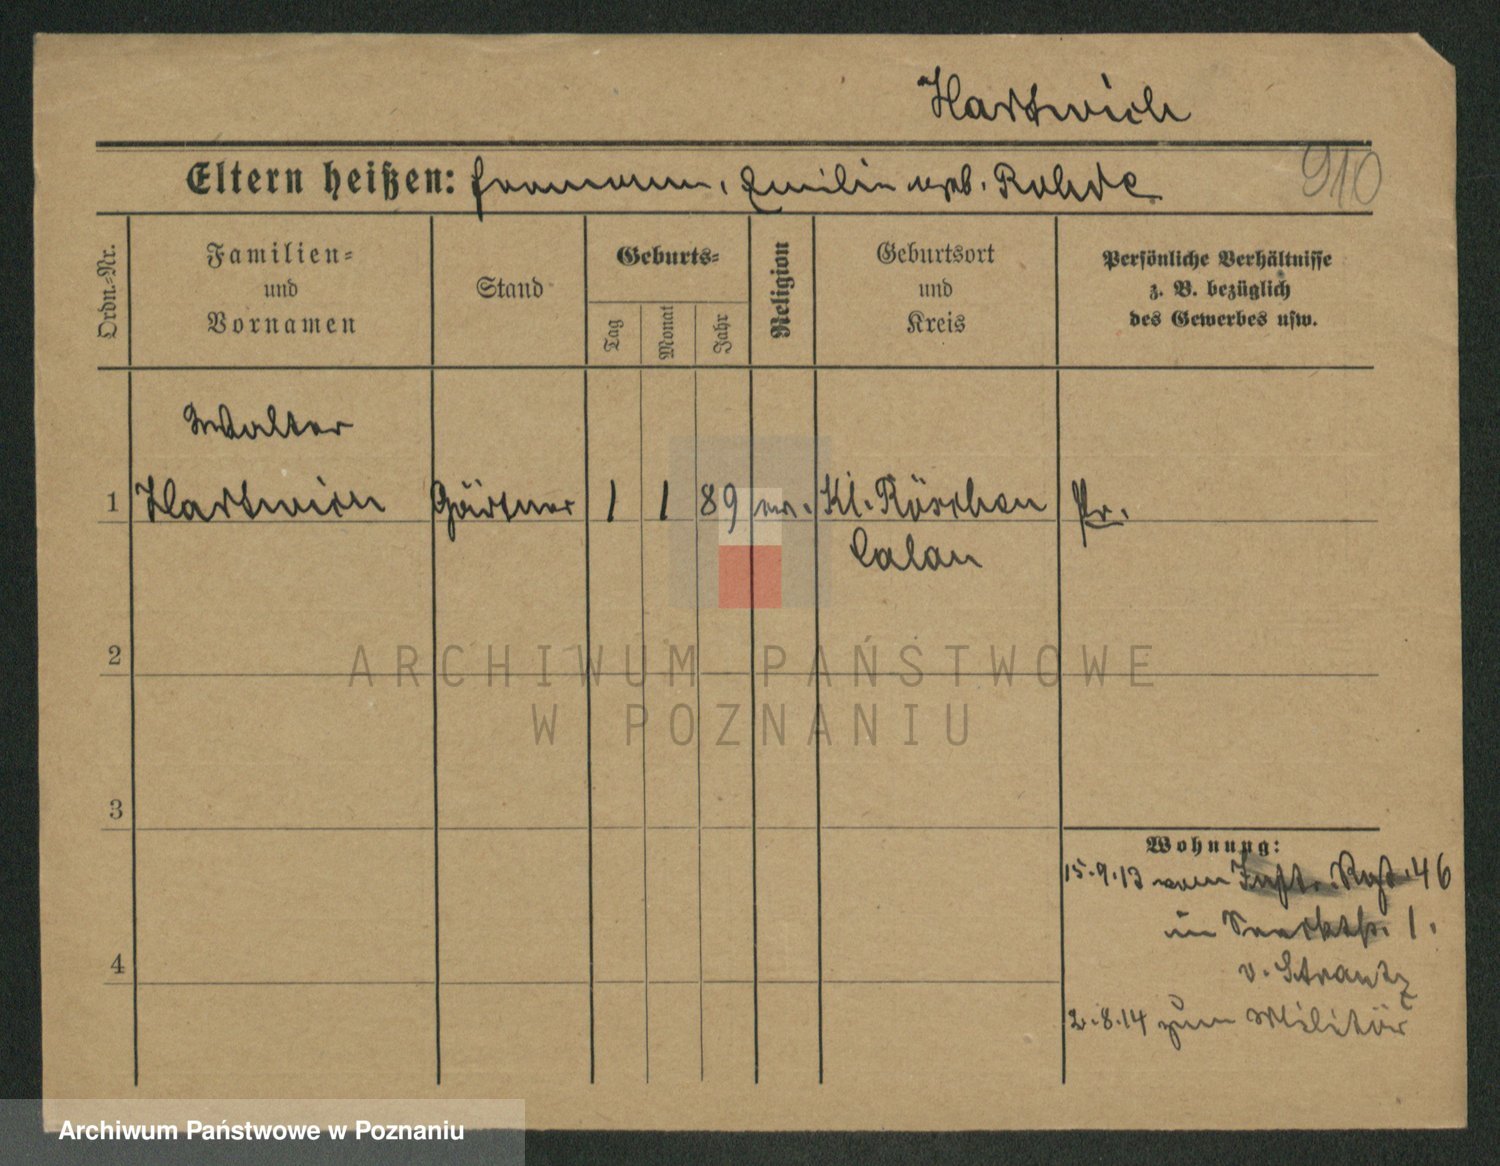 Hartwich
910
Eltern heißen: Hermann, Emilie geb. Rohde
Ordn.-Nr.
Familien- und Vornamen
Stand
Geburts-
Tag
Monat
Jahr
Religion
Geburtsort und Kreis
Persönliche Verhältnisse
z. B. bezüglich
des Gewerbes usw.
Walter
1 Hartwich Gärtner 1 1 89 ev. Kl. Räschen Pr.
Calau
2
3
4
Wohnung:
15.9.13 vom Inftr. Regt. 46
in 1.
v. Strantz
2.8.14 zum Militär
ARCHIWUM PAŃSTWOWE
W POZNANIU
Archiwum Państwowe w Poznaniu